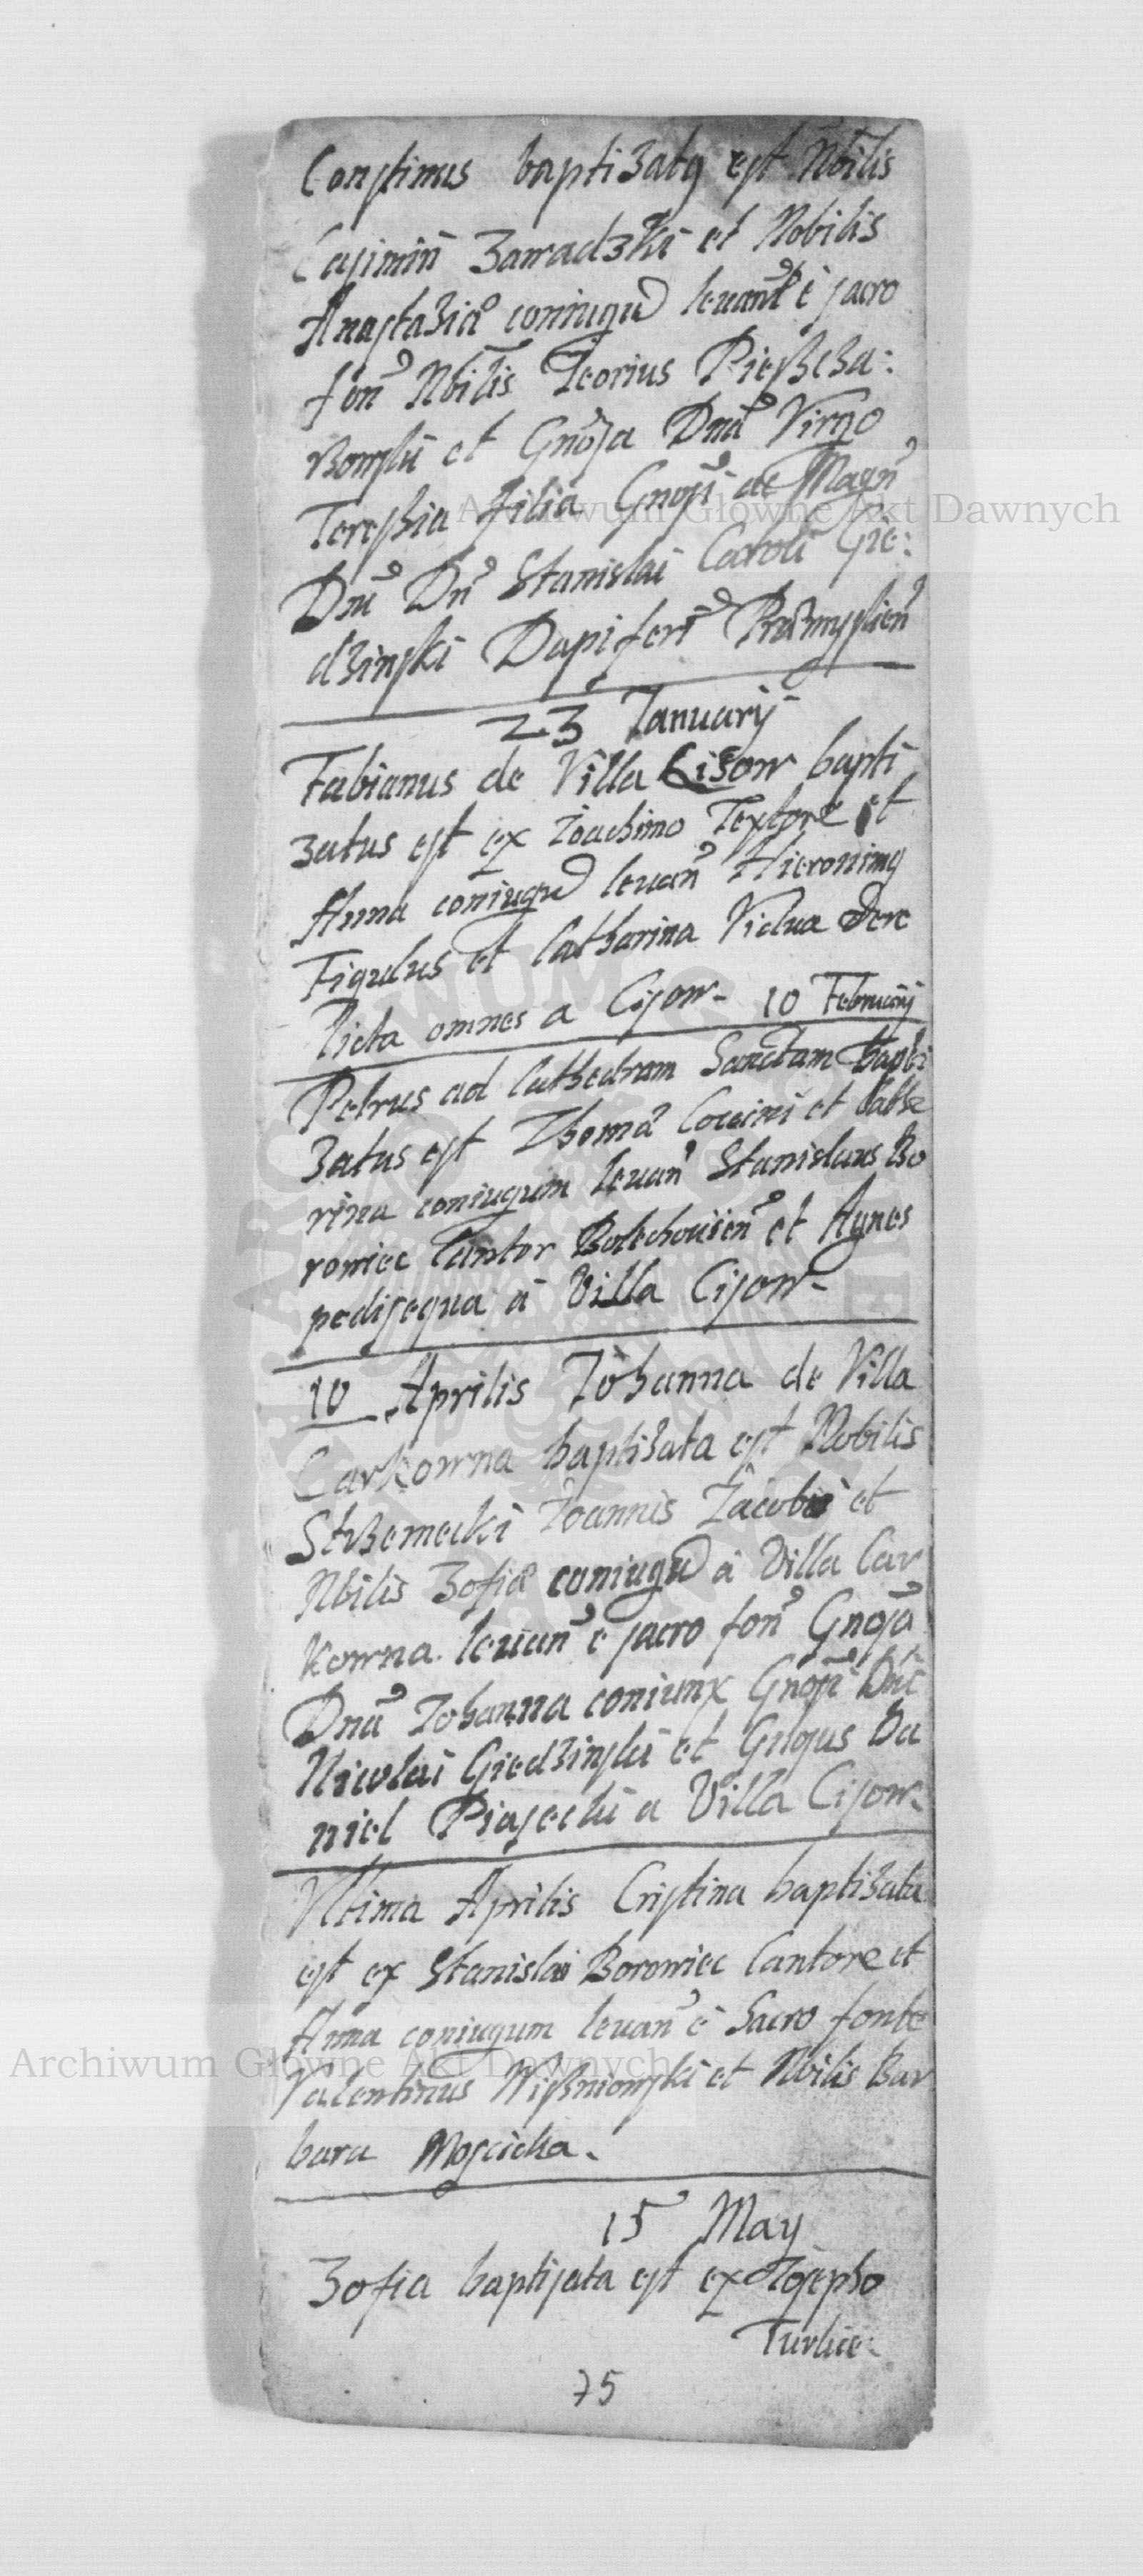 Conſtinus baptizatꝯ eſt Nbilis
Caſimiri Zawadzki et Nobilis
Anaſtaziæ coniugū leuant è ſacro
fon Nbilis Teorius Pieſzcza:
Bowſki et Gnoſa Dna Virgo
Tereſhia Filia Gnoſi de Magn
Dni Dn Stanislai Caroli Gie:
dzinſki Dapiferi Præmyſlien
23 January
Fabianus de Villa Cisow bapti
zatus eſt ex Ioachimo Textore et
Anna coniugū leuan Hieronimꝯ
Figulus et Catharina Vidua Dere
licta omnes a Ciſow. 10 February
Petrus ad Cathedram Sanctam bapti
zatus eſt Thomæ Cocini et Cathe
rina coniugum leuan Stanislaus Bo
rowiec Cantor Bolechouien et Agnes
pediſequa à Villa Ciſow.
10 Aprilis Iohanna de Villa
Carkowna baptizata eſt Nobilis
Strzemecki Ioannis Iacobi et
Nbilis Zofiæ coniugū à Villa Car
kowna. leuan e ſacro fon Gnoſa
Dna Iohanna coniunx Gnoſi Dni
Nicolai Giedzinſki et Gnoſus Da
niel Piaſecki a Villa Ciſow.
Vltima Aprilis Criſtina baptizata
eſt ex Stanislai Borowiec Cantore et
Anna coniugum leuan è Sacro fonte
Valentinus Wiſzniowſki et Nbilis Bar
bara Moſcicka.
15 May
Zofia baptiſata eſt ex Ioſepho
Turkie
75
Archiwum Główne Akt Dawnych
Archiwum Główne Akt Dawnych